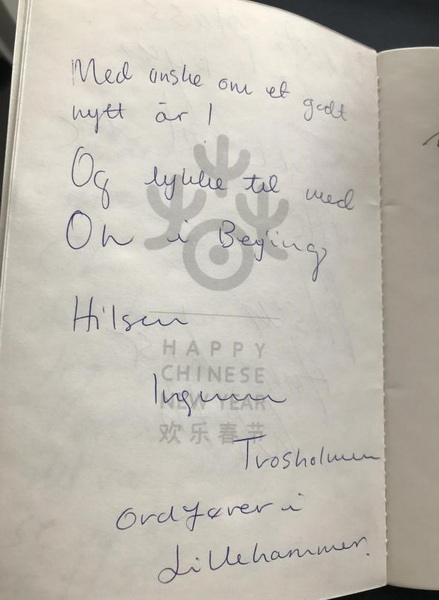 Med ønske om et godt
nytt år !
Og lykke til med
OL i Beying
Hilsen
HAPPY
CHINESE
Ingunn
NEW YEAR
欢乐春节
Trosholmen
Ordfører i
Lillehammer.